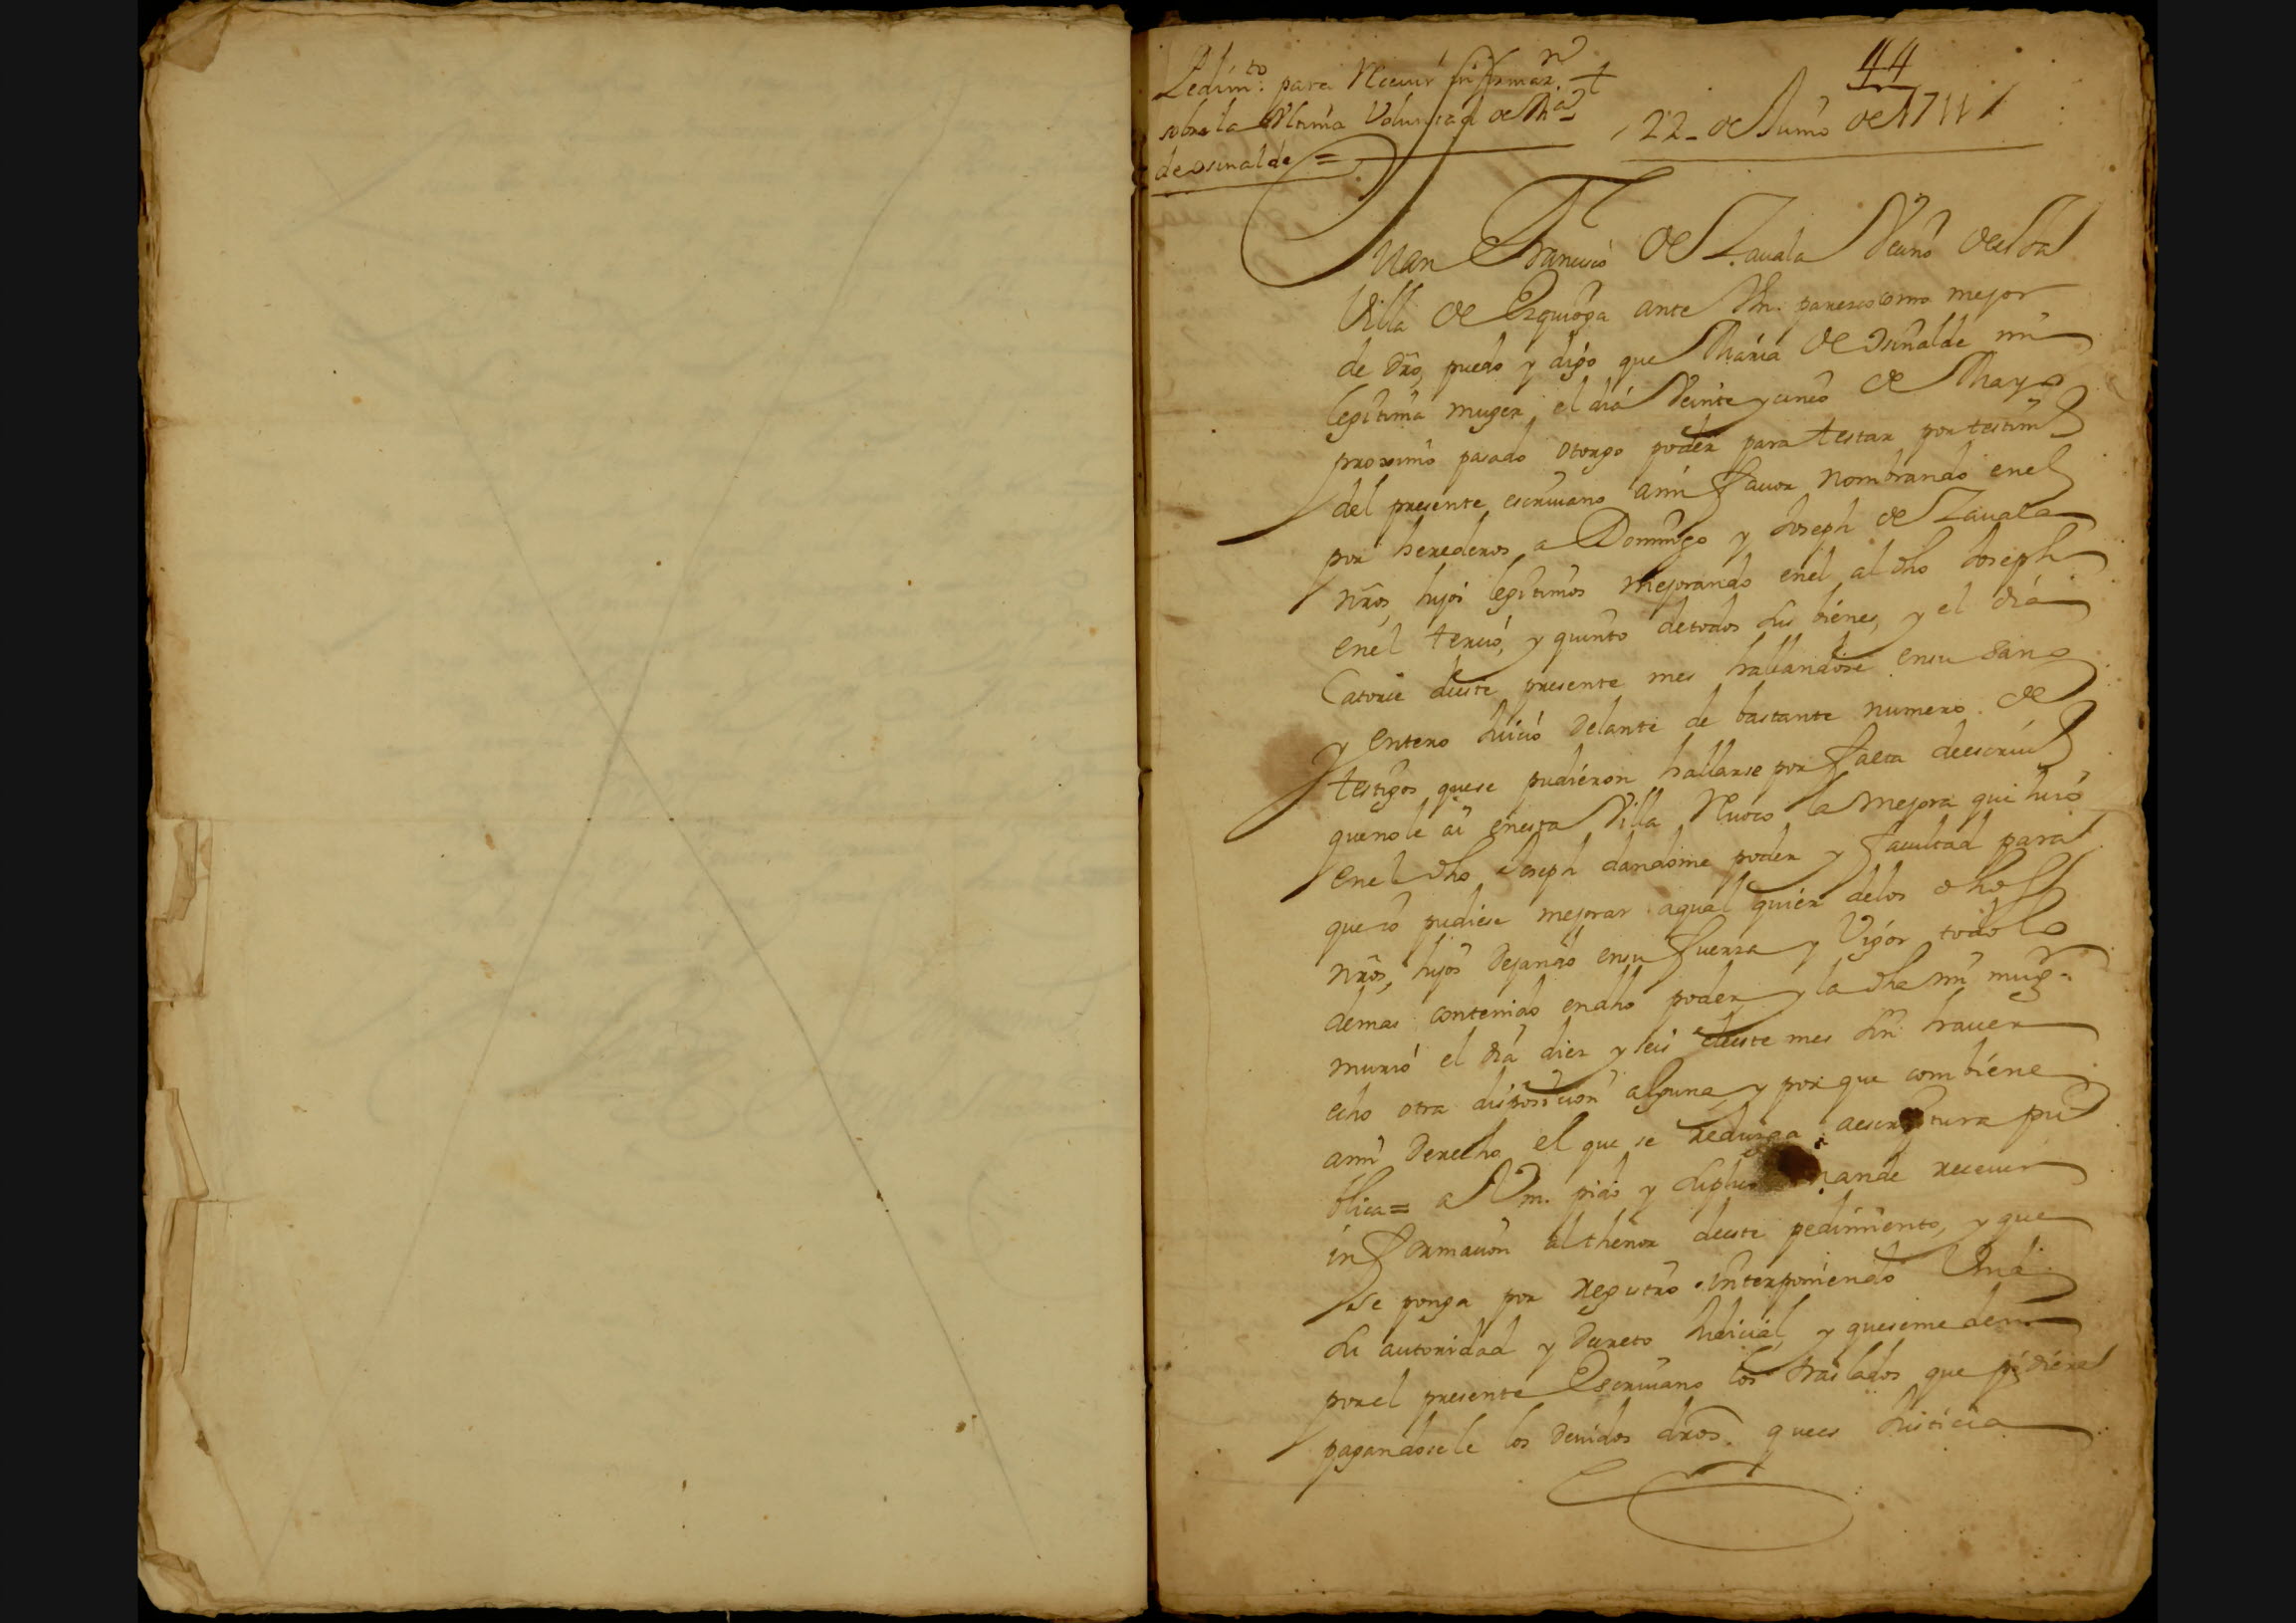 44
Pedim.to para Recivir informaz.n +
sobre la Ultima Voluntad de Ma
de osinalde =
22 - de Junio de 1711
Juan Francisco de Zavala Vecino desta
Villa de Ezquioga ante Vm. paresco como mejor
de dro, puedo y digo que Maria de Osinalde mi
legitima muger, el dia Veinte y cinco de Mayo
proximo pasado otorgo poder para testar por testim
del presente escrivano ami favor nombrando enel
por herederos a Domingo y Joseph de Zavala
nros, hijos legitimos mejorando enel al dho Joseph
enel tercio, y quinto detodos sus bienes, y el dia
Catorce deeste presente mes hallandose ensu sano
y entero Juicio delante de bastante numero de
testigos quese pudieron hallarse por falta deescriv
quenole ai enesta Villa Revoco la mejora que hizo
enel dho Joseph dandome poder y facultad para
que io pudiese mejorar aqual quier delos dhos
nros, hijos dejando ensu fuerza y Vigor todo lo
demas contenido endho poder, y la dha mi mug.r
murio el dia diez y seis deeste mes sin haver
echo otra disposicion alguna, y por que combiene
ami derecho el que se reduzga aescriptura pu
blica = a Vm. pido y suplico mande recevir
informacion al thenor deeste pedimiento, y que
se ponga por registro interponiendo Vmd
su autoridad y decreto Judicial y queseme den
porel presente Escrivano los traslados que pidiere
pagandosele los devidos dros. quees Justicia